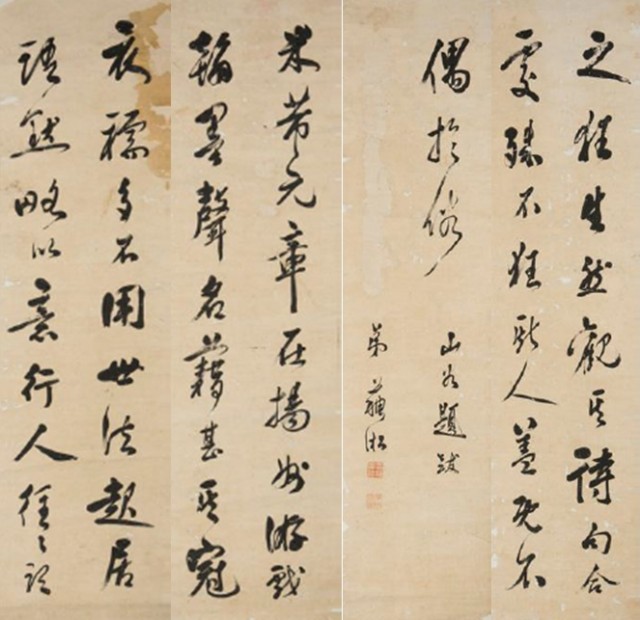 米芾元章在揚州游戲
翰墨聲名藉甚其冠
衣襦多不用世法起居
語默略以意行人往〻謂
之狂生然觀其詩句合
處殊不狂斯人蓋既不
偶於俗
山谷題跋
弟